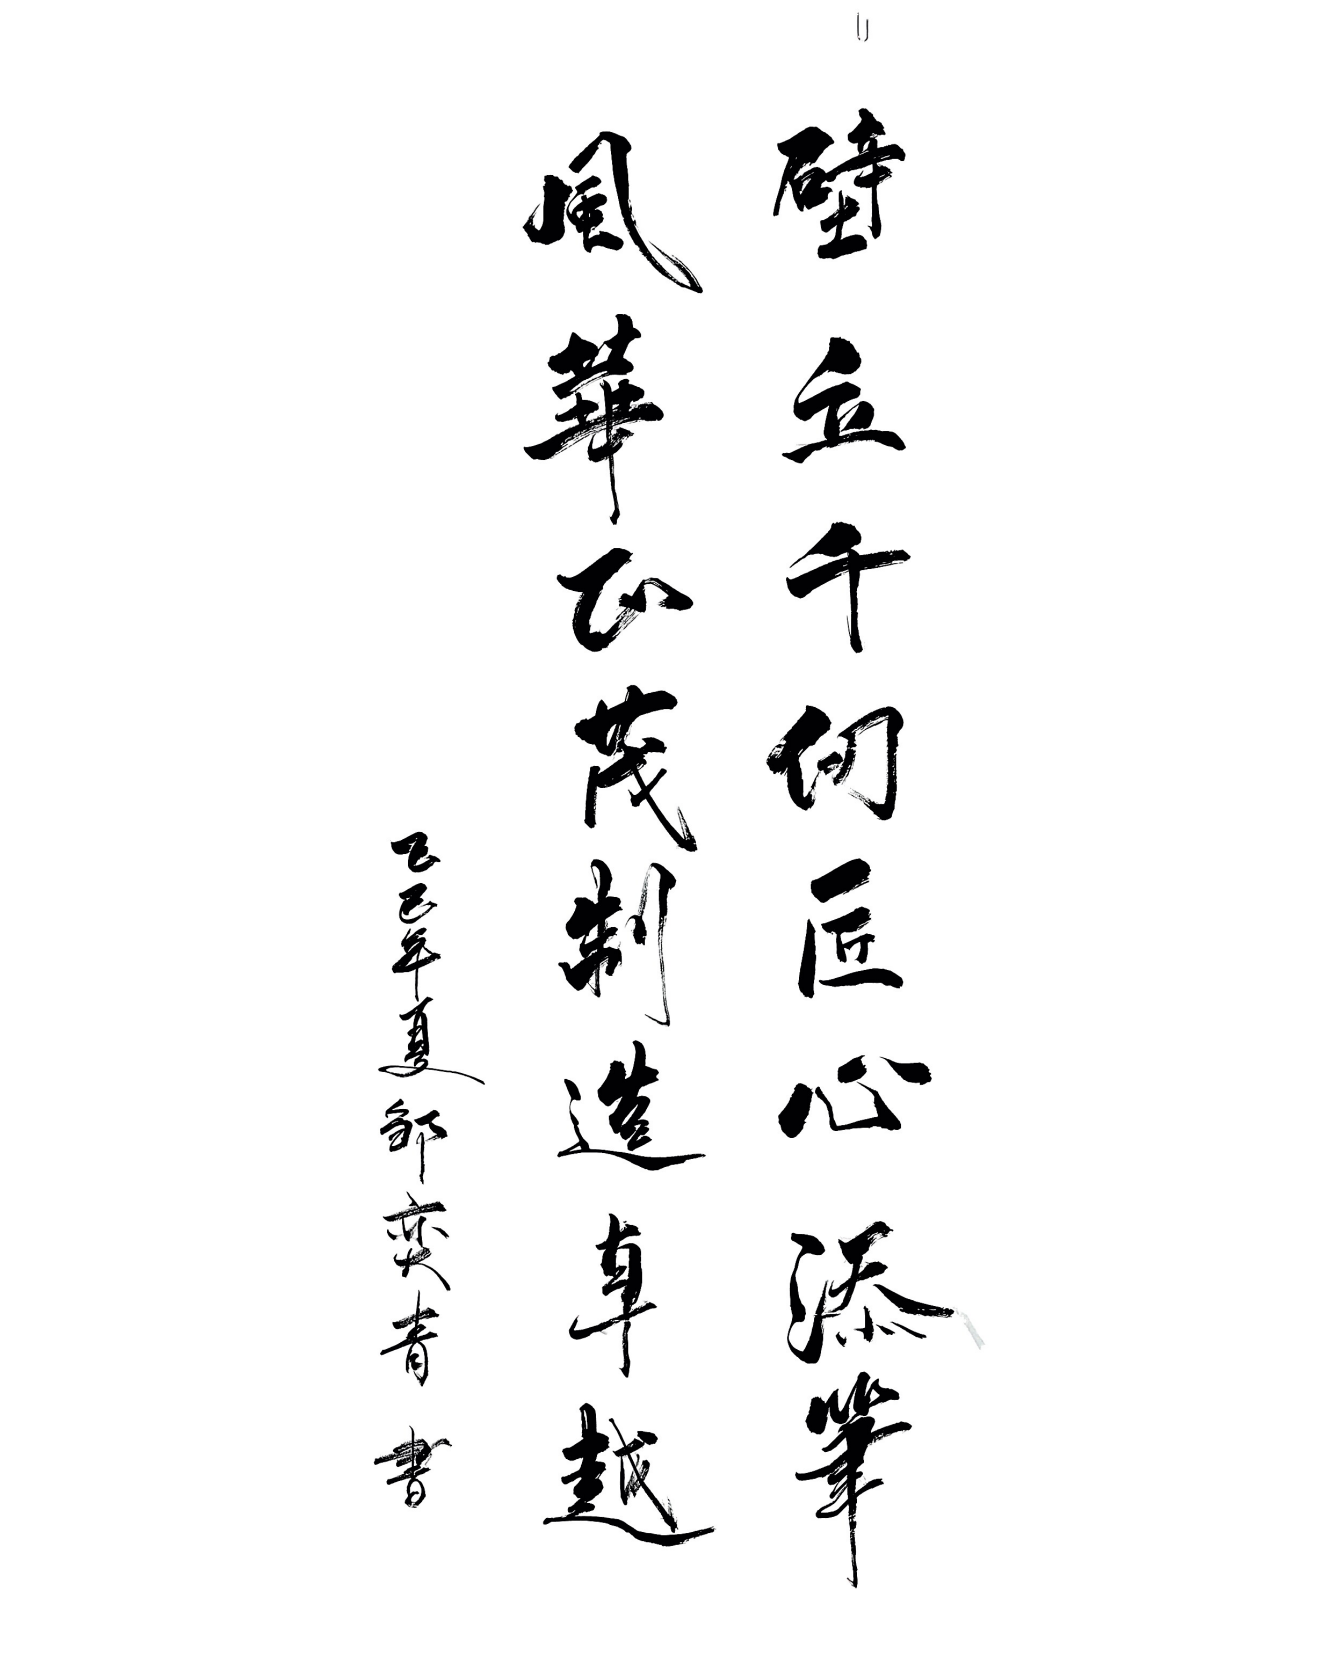 壁立千仞匠心添筆
風華正茂制造卓越
乙巳年夏鄒奕青書